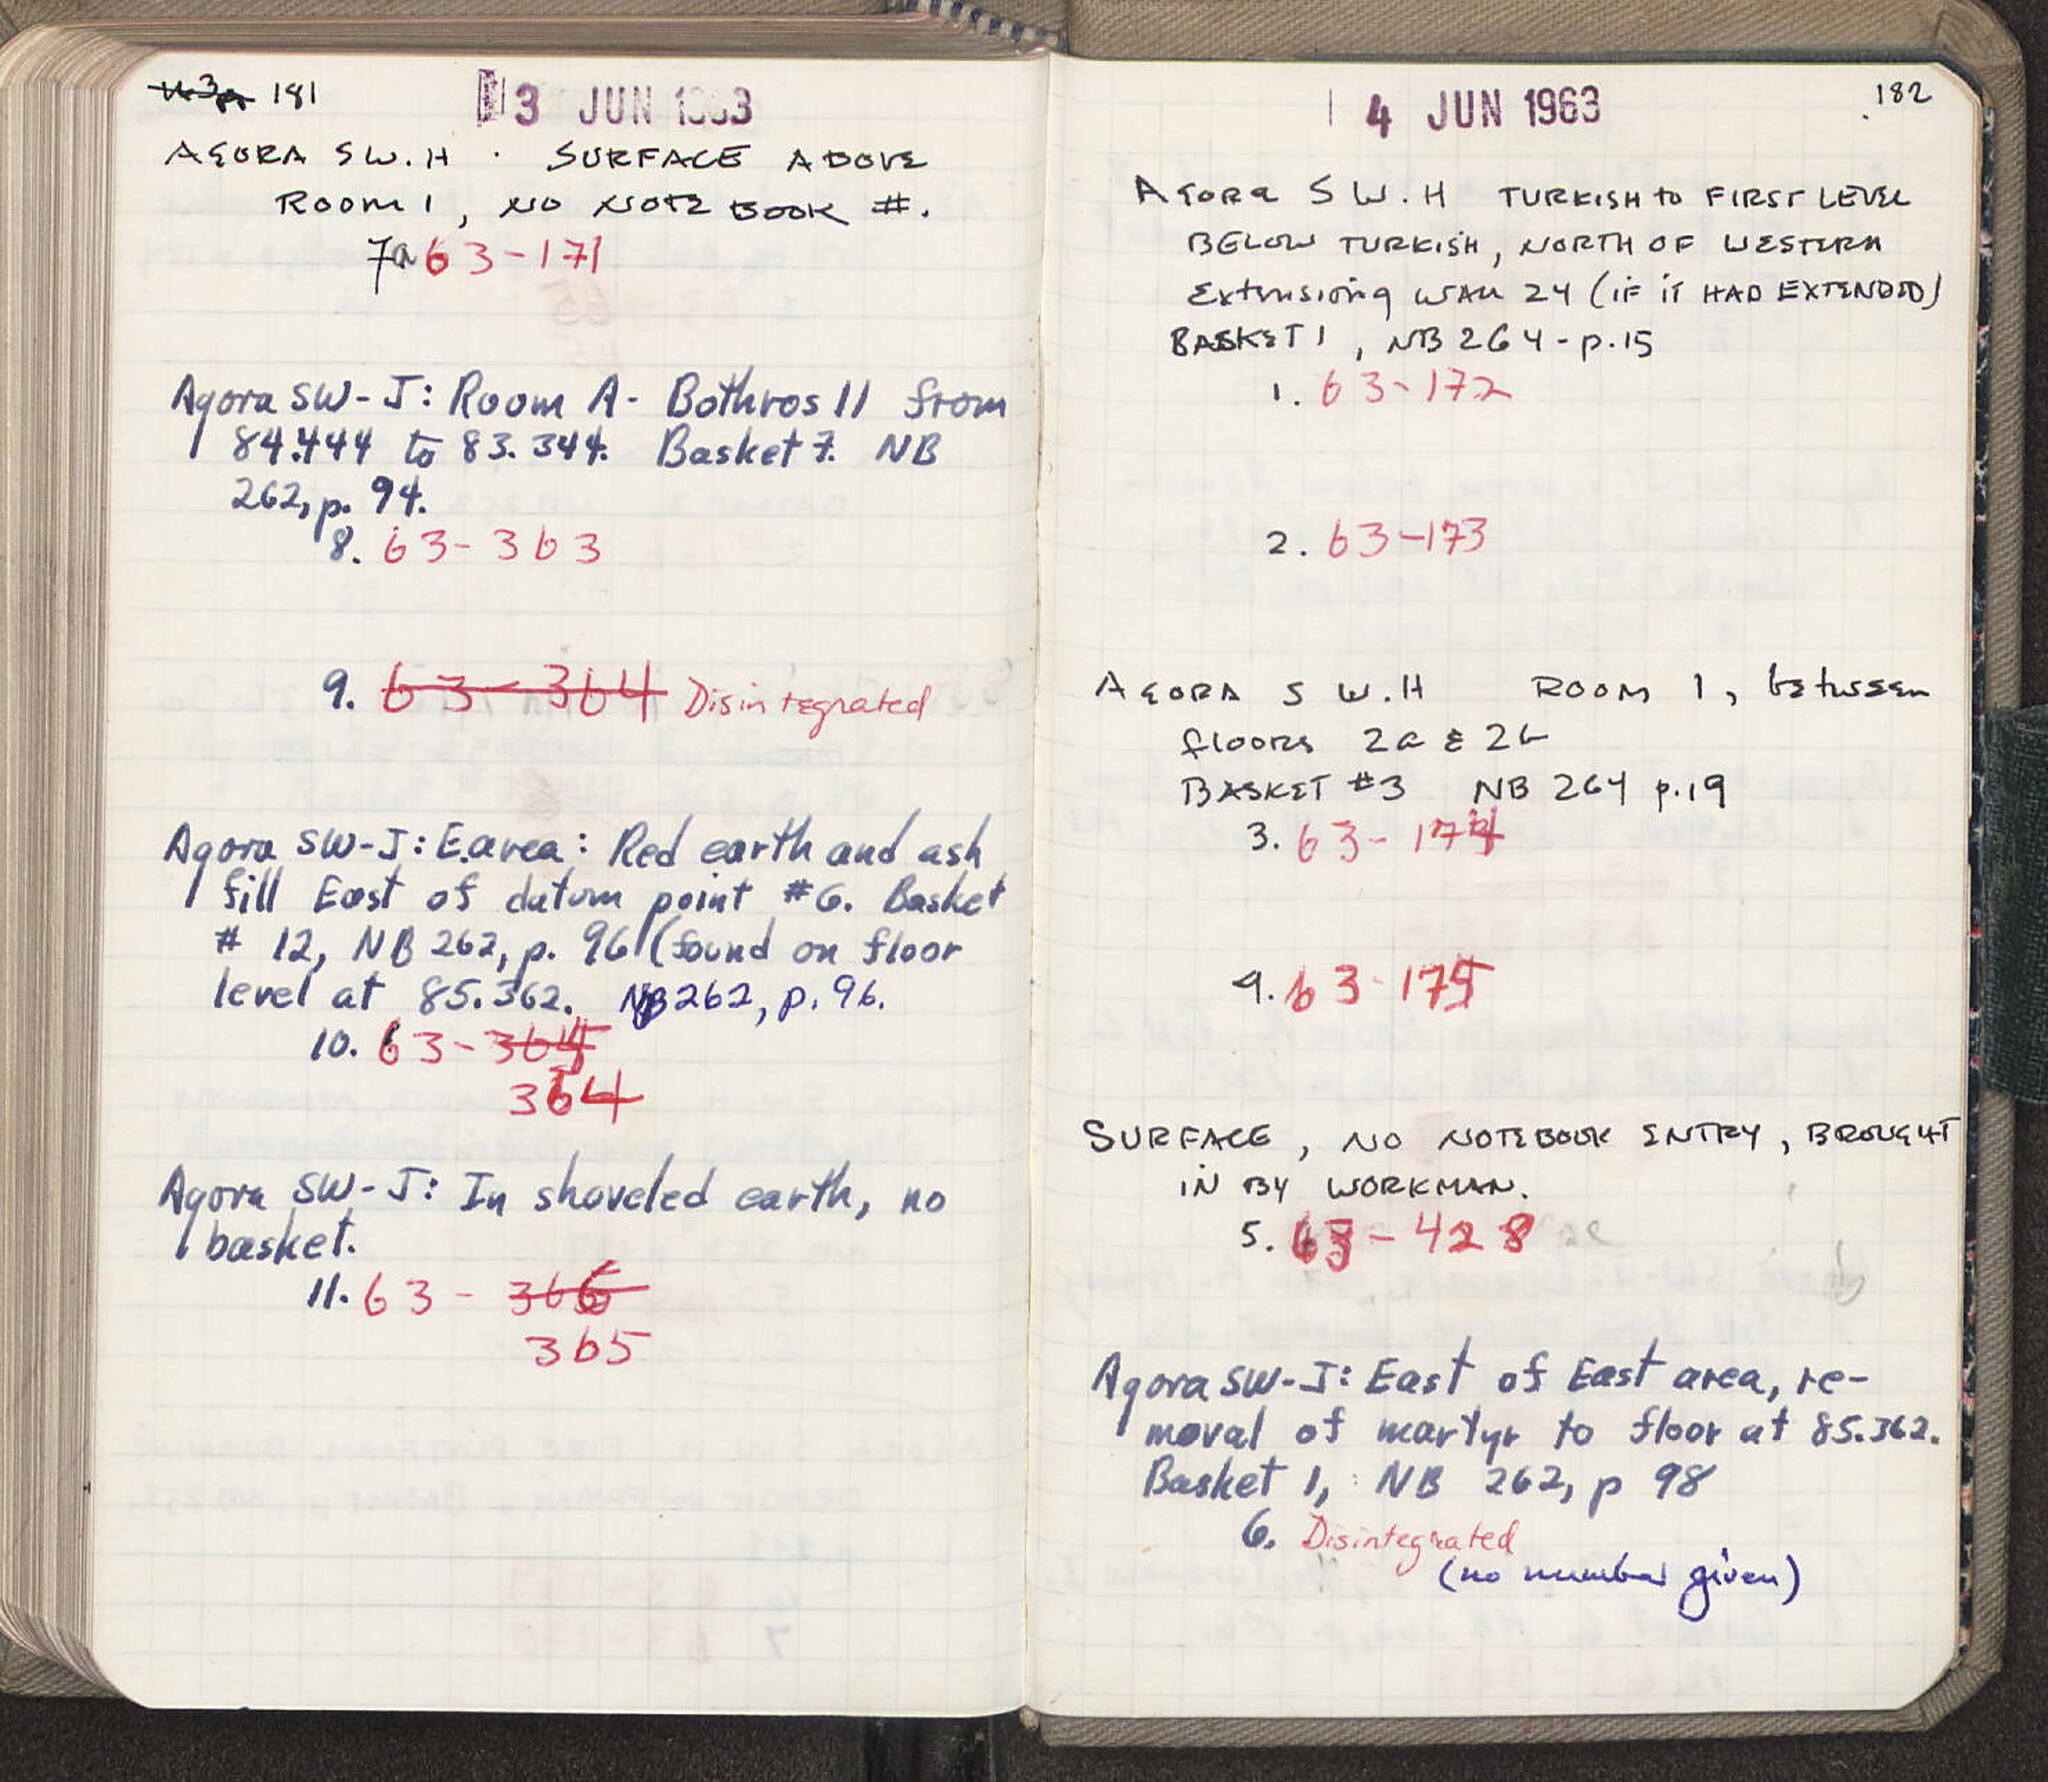 181
3 JUN 1963
AGORA SW.H . SURFACE ABOVE
ROOM 1, NO NOTE BOOK #.
7a 63-171
Agora SW-J: Room A- Bothros 11 from
84.444 to 83.344. Basket 7. NB
262, p. 94.
8. 63-363
9. 63-364 Disintegrated
Agora SW-J: E. area: Red earth and ash
fill East of datum point #6. Basket
# 12, NB 262, p. 96 (found on floor
level at 85.362. NB 262, p. 96.
10. 63-365
364
Agora SW-J: In shoveled earth, no
basket.
11. 63-366
365
182
4 JUN 1963
AGORA SW.H TURKISH to FIRST LEVEL
BELOW TURKISH, NORTH OF WESTERN
Extensiong WALL 24 (IF iT HAD EXTENDED)
BASKET 1, NB 264-p.15
1. 63-172
2. 63-173
AGORA SW.H ROOM 1, between
floors 2a & 2b
BASKET #3 NB 264 p.19
3. 63-174
4. 63-175
SURFACE, NO NOTEBOOK ENTRY, BROUGHT
iN BY WORKMAN.
5. 63-428
Agora SW-J: East of East area, re-
moval of martyr to floor at 85.362.
Basket 1, NB 262, p 98
6. Disintegrated
(no number given)